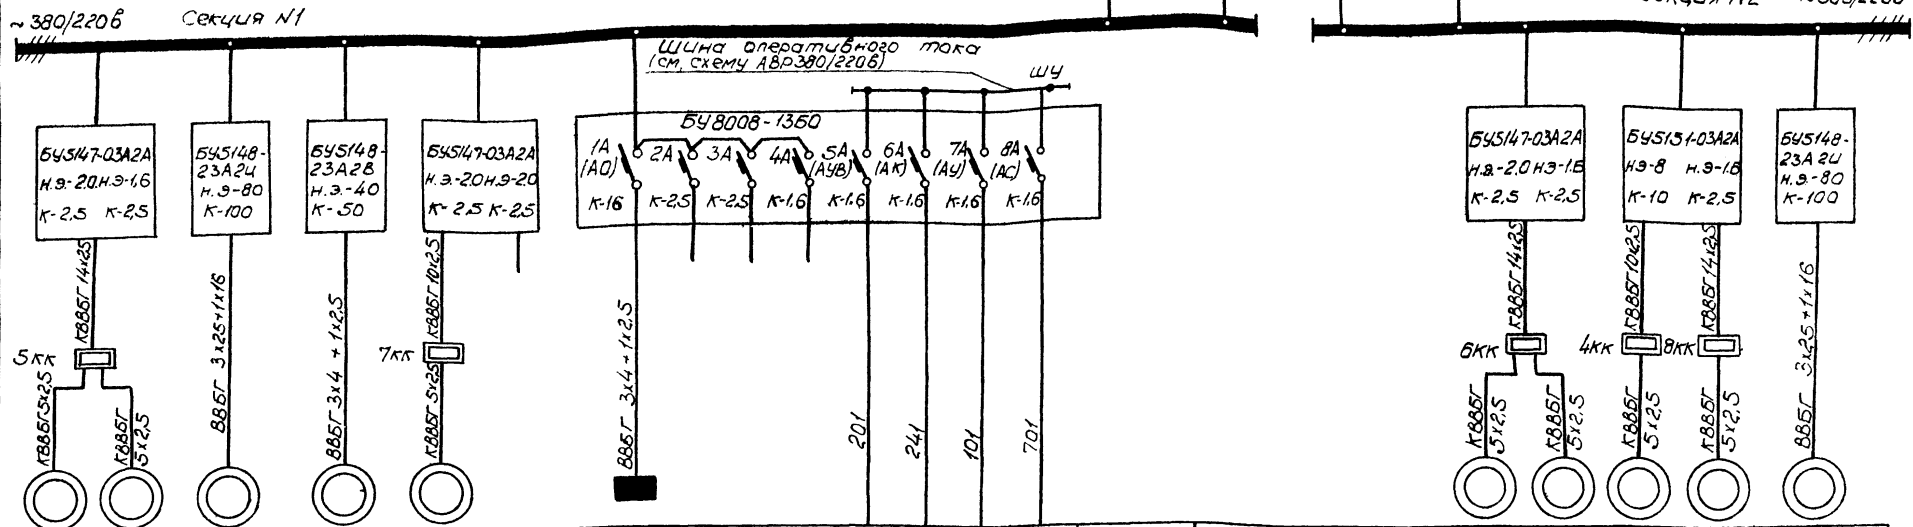 ~380/220в
Секция N1
Шина оперативного тока
(см. схему АВР380/220в)
ШУ
БУ5147-03А2А
н.э.-2.0 н.э-1,6
К-2,5 К-2,5
БУ5148-
23А2И
н.э-80
К-100
БУ5148-
23А2В
н.э.-40
К-50
БУ5147-03А2А
н.э.-2.0 н.э-2.0
К-2,5 К-2,5
БУ8008-13Б0
1А
(АО)
К-16
2А
К-2,5
3А
К-2,5
4А
К-1,6
5А
(АУВ)
К-1,6
6А
(АК)
К-1,6
7А
(АУ)
К-1,6
8А
(АС)
К-1,6
БУ5147-03А2А
н.э.-2,0 н.э-1.6
К-2,5 К-2,5
БУ5131-03А2А
н.э-8 н.э-1.6
К-10 К-2,5
БУ5148-
23А2И
н.э.-80
К-100
КВВБГ 14х2,5
5КК
КВВБГ 5х2,5
КВВБГ
5х2,5
ВВБГ 3х25+1х16
ВВБГ 3х4+1х2,5
КВВБГ 10х2,5
7КК
КВВБГ 5х2,5
ВВБГ 3х4+1х2,5
201
241
101
701
КВВБГ 14х2,5
6КК
КВВБГ
5х2,5
КВВБГ
5х2,5
КВВБГ 10х2,5
4КК
КВВБГ
5х2,5
КВВБГ 14х2,5
8КК
КВВБГ
5х2,5
ВВБГ 3х25+1х16